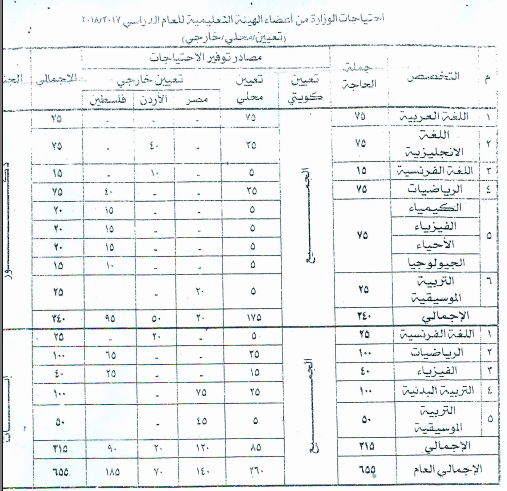 احتياجات الوزارة من أعضاء الهيئة التعليمية للعام الدراسي ٢٠١٨/٢٠١٧
(تعيين/محلي/خارجي)
م التخصص جملة الحاجة مصادر توفير الاحتياجات الإجمالي
تعيين كويتي تعيين محلي تعيين خارجي
مصر الأردن فلسطين
١ اللغة العربية ٧٥ ٧٥ ٧٥
٢ اللغة الانجليزية ٧٥ ٣٥ - ٤٠ - ٧٥
٣ اللغة الفرنسية ١٥ ٥ - ١٠ - ١٥
٤ الرياضيات ٧٥ ٣٥ - - ٤٠ ٧٥
٥ الكيمياء ٧٥ ٥ - - ١٥ ٢٠
الفيزياء ٥ - - ١٥ ٢٠
الأحياء ٥ - - ١٥ ٢٠
الجيولوجيا ٥ - - ١٠ ١٥
٦ التربية الموسيقية ٢٥ ٥ ٢٠ - ٢٥
الإجمالي ٣٤٠ ١٧٥ ٢٠ ٥٠ ٩٥ ٣٤٠
الجميع
١ اللغة الفرنسية ٢٥ ٥ ٢٠ - ٢٥
٢ الرياضيات ١٠٠ ٣٥ - - ٦٥ ١٠٠
٣ الفيزياء ٤٠ ١٥ - - ٢٥ ٤٠
٤ التربية البدنية ١٠٠ ٢٥ ٧٥ - - ١٠٠
٥ التربية الموسيقية ٥٠ ٥ ٤٥ ٥٠
الإجمالي ٣١٥ ٨٥ ١٢٠ ٢٠ ٩٠ ٣١٥
الجميع
الإجمالي العام ٦٥٥ ٢٦٠ ١٤٠ ٧٠ ١٨٥ ٦٥٥